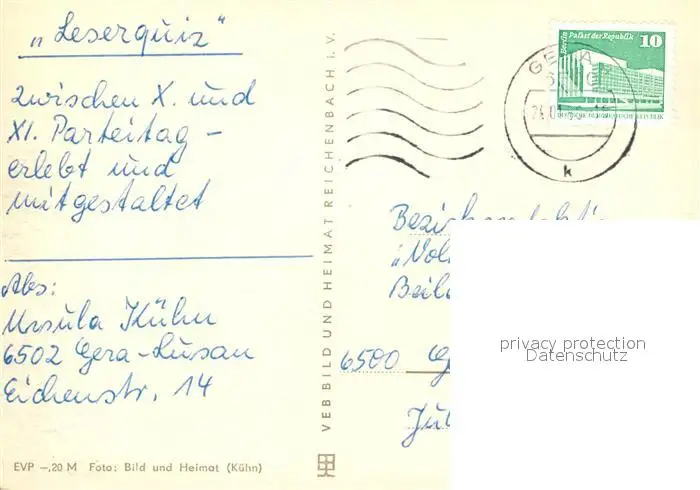 „Leserquiz“
zwischen X. und
XI. Parteitag –
erlebt und
mitgestaltet
Abs:
Ursula Kühn
6502 Gera-Lusan
Eichenstr. 14
EVP –,20 M Foto: Bild und Heimat (Kühn)
VEB BILD UND HEIMAT REICHENBACH i. V.
Berlin Palast der Republik 10
DEUTSCHE DEMOKRATISCHE REPUBLIK
k
6500
privacy protection
Datenschutz